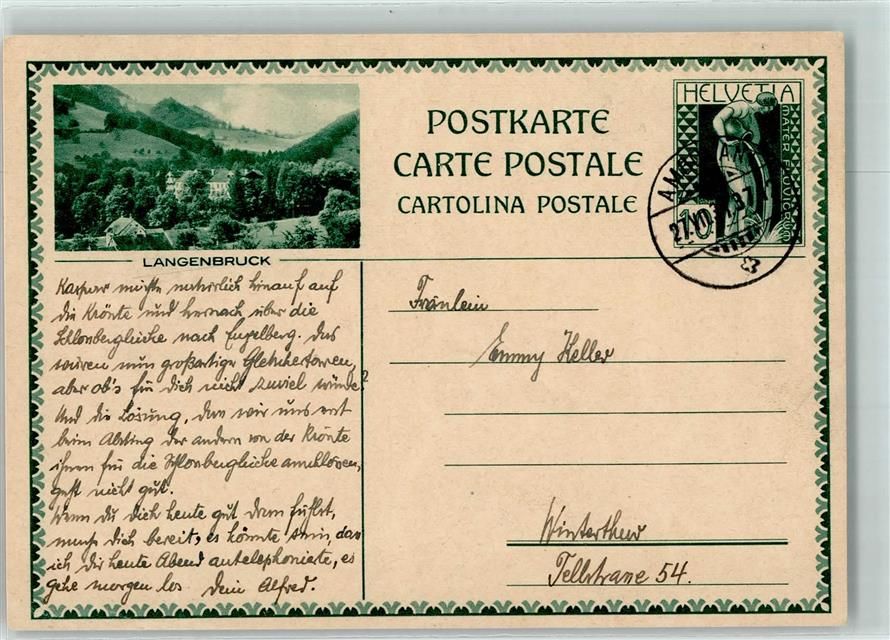 POSTKARTE
CARTE POSTALE
CARTOLINA POSTALE
HELVETIA
MATER FLUVIORUM
10
27.VII.31.
LANGENBRUCK
Kaspar möchte natürlich hinauf auf
die Krönte und hernach über die
Schlossberglücke nach Engelberg. Das
wären nun großartige Gletschertouren,
aber ob's für Dich nicht zuviel würde?
Und die Lösung, dass wir uns erst
beim Abstieg der andern von der Krönte
ihnen für die Schlossberglücke anschlössen,
geht nicht gut.
Wenn Du Dich heute gut dazu fühlst,
mach Dich bereit, es könnte sein, dass
ich Dir heute Abend antelephonierte, es
gehe morgen los Dein Alfred.
Fräulein
Emmy Keller
Winterthur
Tellstrasse 54.